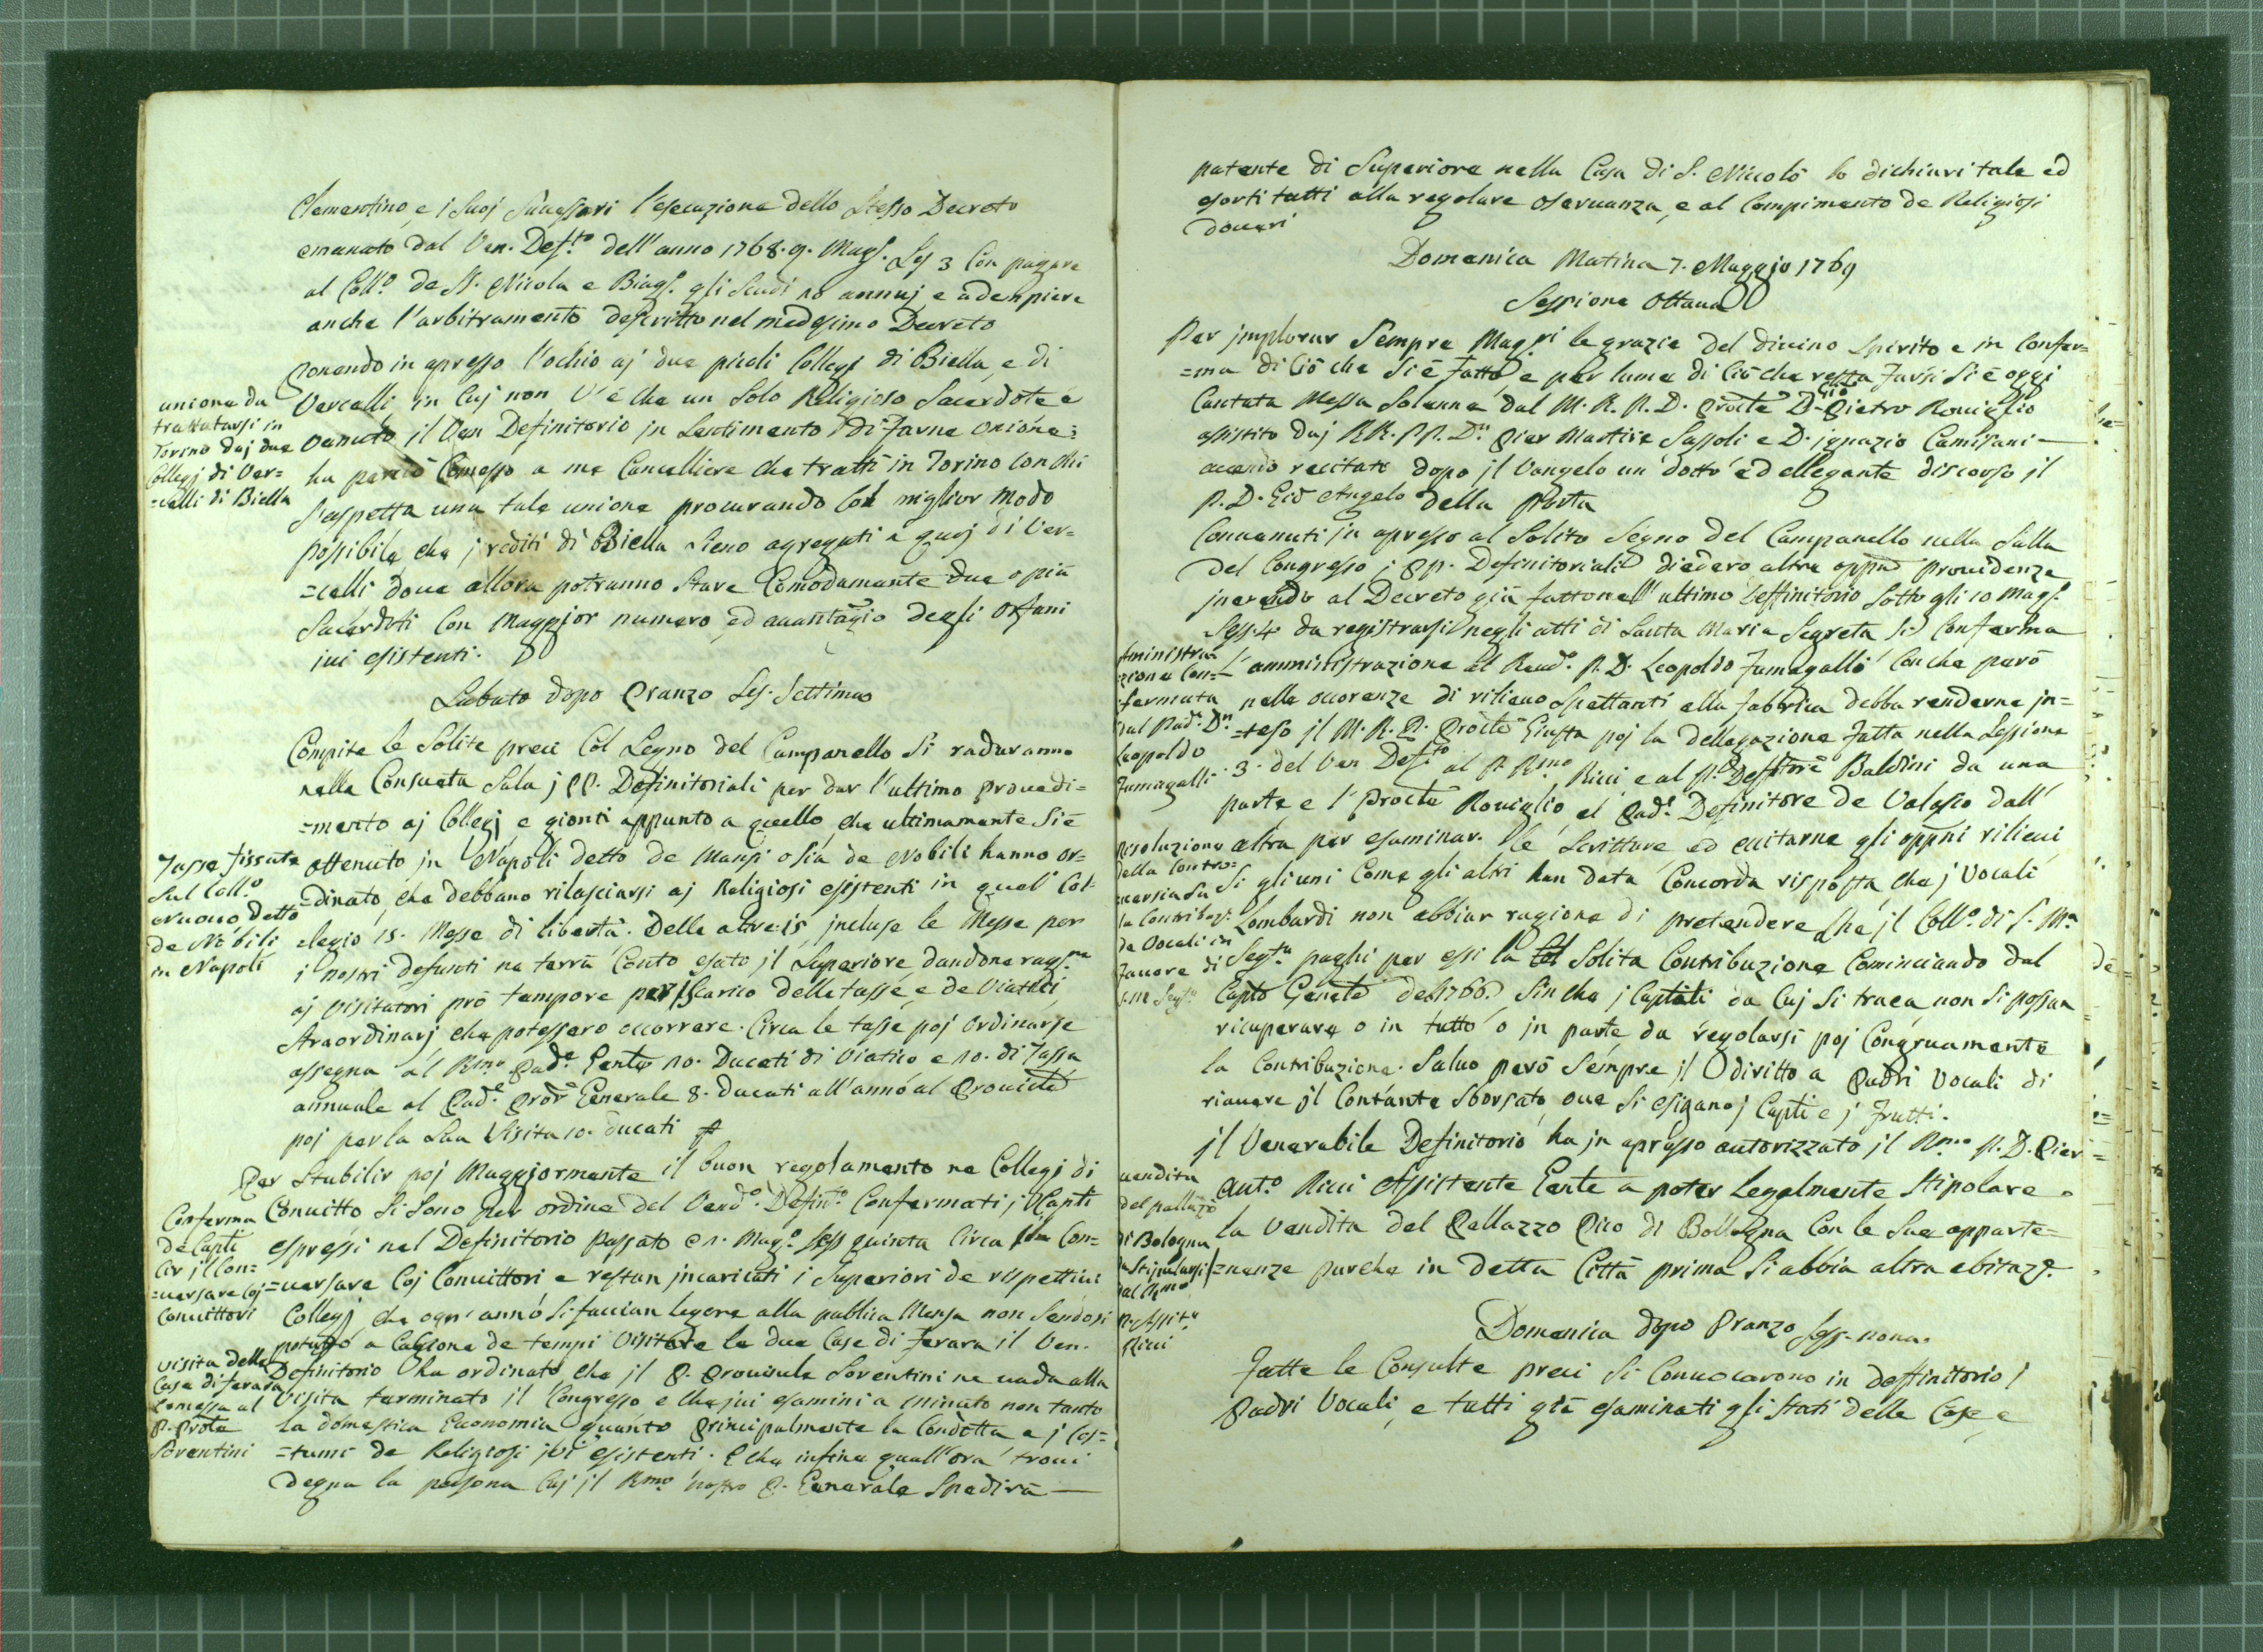 Clementino, e i suoj Sucessori l'esecuzione dello Stesso Decreto
emanato dal Ven. Def.to dell'anno 1768. 9. Magg. Ses 3 Con pagare
al Coll.o de SS. Nicola e Biagg. gli Scudi 10 annuj e adempiere
anche l'arbitramento descritto nel medesimo Decreto
Ponendo in apresso l'ochio aj due picoli Collegj di Biella, e di
Vercelli in Cuj non V'é che un Solo Religioso Sacerdote é
venuto il Ven Definitorio in Sentimento di Farne Unione:
ha perciò Comesso a me Cancelliere che tratti in Torino con chi
S'aspetta una tale unione procurando Col miglior modo
possibile che j rediti di Biella sieno agregati a quej di Ver=
=celli doue allora potranno Stare Comodamente due o più
Sacerdoti Con Maggior numero ed auantagio degli Orfani
iui esistenti.
unione da
trattatarsi in
Torino dej due
Collegj di Ver=
=celli di Biella
Sabato dopo Pranzo Ses. Settima
Compite le Solite preci Col Segno del Campanello Si radunanno
nella Consueta Sala j PP. Definitoriali per dar l'ultimo prouedi=
=mento aj Collegj e gionti appunto a quello che ultimamente Si é
ottenuto in Napoli detto de Mansi o sia de Nobili hanno or=
=dinato, che debbano rilasciarsi aj Religiosi esistenti in quel Col=
=legio 15. Messe di libertà. Delle altre 15, incluse le Messe per
i nostri defunti ne terrà Conto esato il Superiore dandone ragg.ne
aj Visitatori prò tempore per iscarico delle tasse, e de Viatici
Straordinarj che potessero occorrere. Circa le tasse poj Ordinarie
assegna al Rmo Pad.e Gente 10. Ducati di Viatico e 10. di Tassa
annuale al Pad.e Prōr Generale 8. ducati all'anno al Prouinclē
poj per la Sua Visita 10. ducati
Tasse fissate
Sul Coll.o
nuouo detto
de Nobili
in Napoli
Per Stabilir poj Maggiormente il buon regolamento ne Collegj di
Conuitto Si Sono per ordine del Vend.o Defin.o Confermati j Capti
espressi nel Definitorio passato Magg.o Sess quinta Circa il Con=
=uersare Coj Conuittori e restan incaricati i Superiori de rispettiui
Collegj che ogn'anno Si faccian legere alla publica Mensa non Sendosi
potuto a Cagione de tempi Visitare le due Case di Ferara il Ven.
Definitorio ha ordinato che il P. Prouinle Soventini ne uada alla
Visita terminato il Congresso e che jui esamini a minuto non tanto
la domestica Economia quanto principalmente la Condotta e j Cos=
=tumi de Religiosi jui esistenti. E che infine quall'ora troui
degna la persona Cuj il Rmo nostro P. Generale Spedirà
Conferma
de Capti
Cir il Con=
=uersare Coj
Conuittori
Visita delle
Case di ferara
Comessa al
P. Prole
Soventini
patente di Superiore nella Casa di S. Nicolò lo dichiari tale ed
esorti tutti alla regolare oseruanza, e al Compimento de Religiosi
doueri
Domenica Matina 7. Maggio 1769
Sessione Ottaua
Per jmplorar Sempre Maggri le grazie del diuino Spirito e in Confer=
=ma di Ciò che Si é fatto e per lume di Ciò che resta Farsi Si é oggi
Cantata Messa Solenne dal M. R. P. D. Procle D. Gio Pietro Rouiglio
assistito daj RR. PP. D.n Pier Martire Sassoli e D. ignazio Camisani
auendo recitato dopo il Vangelo un dotto ed ellegante discorso il
P. D. Gio Angelo della Porta
Conuenuti in apresso al Solito Segno del Campanello nella Salla
del Congresso j PP. Definitoriali diedero altre oppne prouidenze
inerendo al Decreto già fatto nell'ultimo Deffinitorio sotto gli 10 Magg.
Sess. 4. da registrarsi negli atti di Santa Maria Segreta Si Conferma
l'amministrazione al Reud.o P. D. Leopoldo Fumagalli Con che però
nelle occorenze di rilieuo Spettanti alla fabbrica debba renderne in=
=teso il M. R. P. Procle Giusta poj la dellegazione fatta nella Sessione
3. del Ven Defto al P. Rmo Ricci e al P. Deffitore Baldini da una
parte e l'Procle Rouiglio, el Pad.e Definitore de Valasio dall'
altra per esaminar. le Scritture ed euitarne gli oppni rilieui
Si gli uni Come gli altri han data Concorda risposta che j Vocali
Lombardi non abbian ragione di pretendere che il Coll.o di S. Ma
Segta paghi per essi la Solita Contribuzione Cominciando dal
Capto Genele del 1766. Sin che j Captali da Cuj Si traea non Si possan
ricuperare o in tutto o in parte da regolarsi poj Congruamente
la Contribuzione. Saluo però Sempre il diritto a Padri Vocali di
riauere il Contante Sborsato, oue Si esigano j Capti e j frutti.
Amministra
zione Con=
fermata
sul Pad.e D.n
Leopoldo
Fumagalli
Resoluzione
della Contro=
uersia Su
la Contribuz.
de Vocali in
Fauore di
S. M. Segta
il Venerabile Definitorio ha in apresso autorizzato il Rmo P. D. Pier
Ant.o Ricci Assistente Gente a poter Legalmente Stipolare
la Vendita del Pallazzo Pico di Bollogna Con le Sue apparte=
=nenze purche in detta Città prima Si abbia altra abitaz.e
uendita
del pallazo
di Bologna
da Stipularsi
dal Rmo
P. Assite
Ricci
Domenica dopo Pranzo Sess. nona.
Fatte le Consulte preci Si Conuocarono in deffinitorio i
Padri Vocali, e tutti già esaminati gli Stati delle Case e